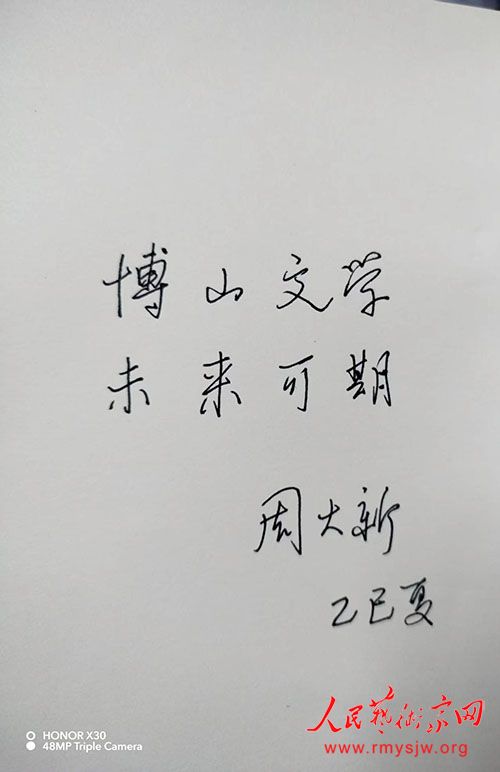 博山文学
未来可期
周大新
乙巳夏
HONOR X30
48MP Triple Camera
人民艺術家网
www.rmysjw.org